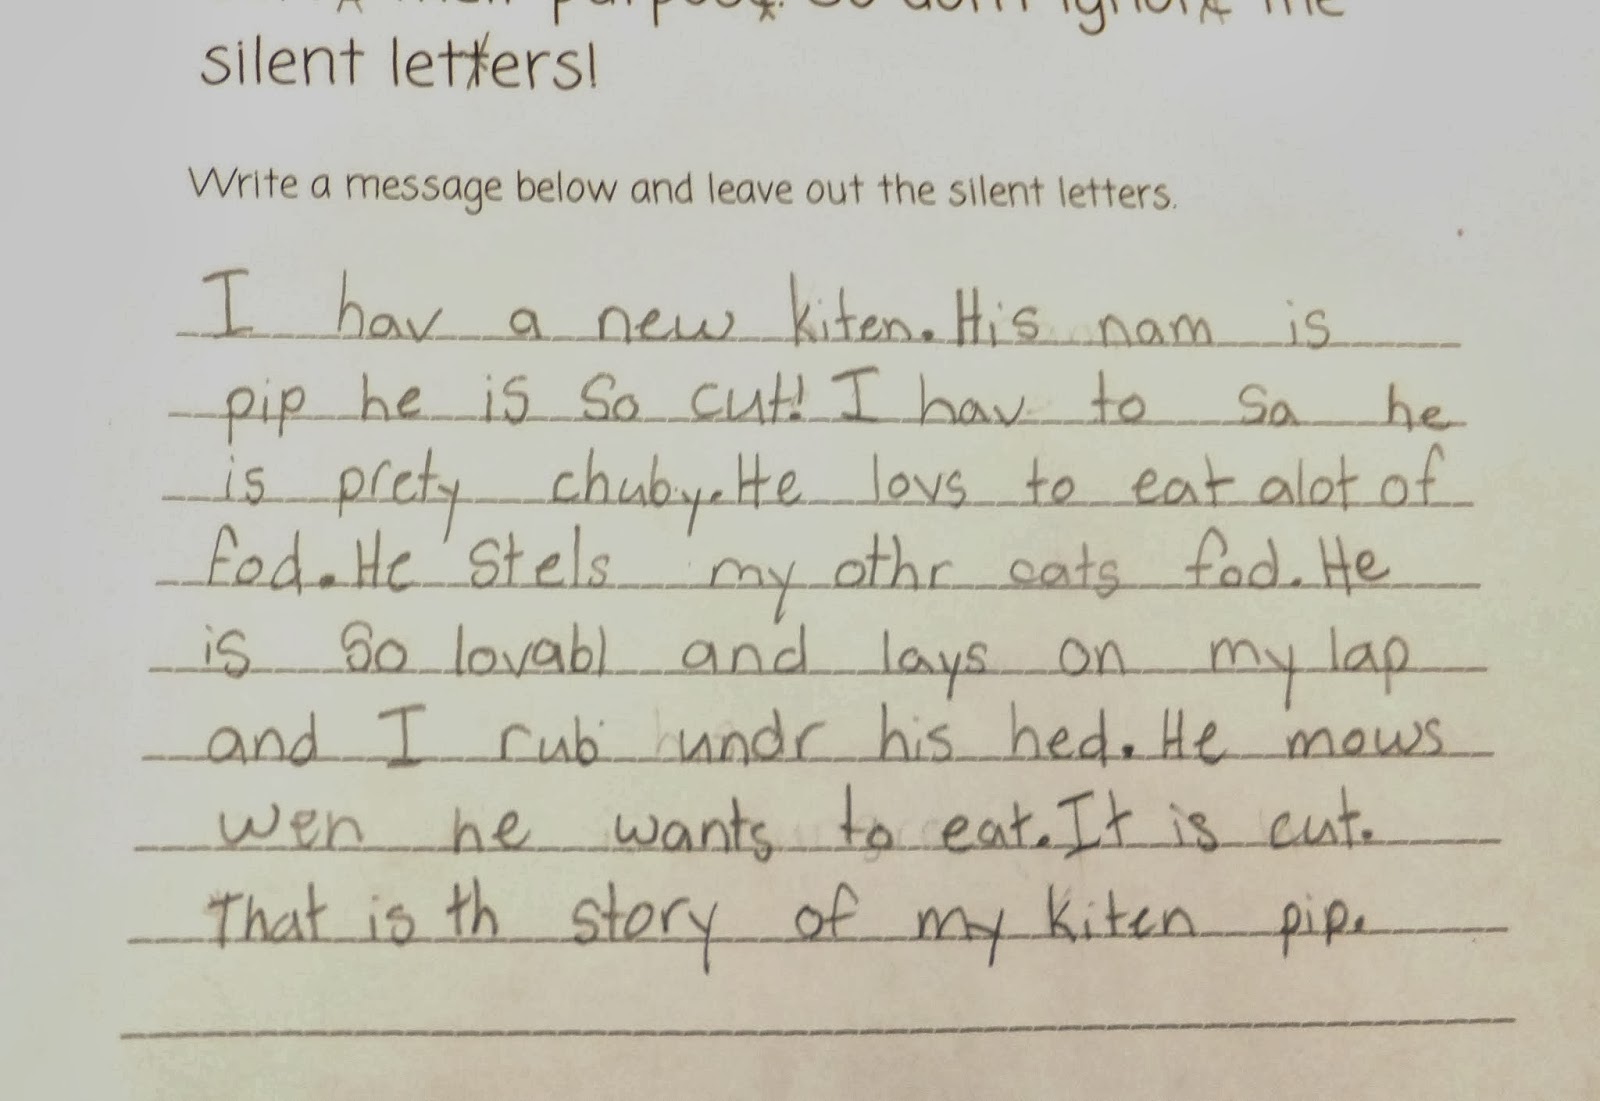 their purpose. So don't ignore the
silent letters!
Write a message below and leave out the silent letters.
I hav a new kiten. His nam is
pip he is so cut! I hav to sa he
is prety chuby. He lovs to eat alot of
fod. He stels my othr cats fod. He
is so lovabl and lays on my lap
and I rub undr his hed. He mows
wen he wants to eat. It is cut.
That is th story of my kiten pip.